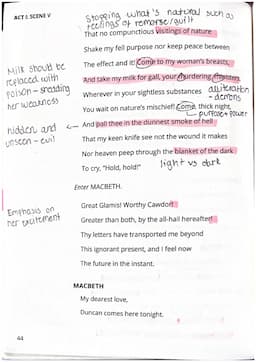 ACT I: SCENE V
Stopping what's natural such as
feelings of remorse/guilt
That no compunctious visitings of nature
Shake my fell purpose nor keep peace between
The effect and it! Come to my woman's breasts,
Milk should be
replaced with
poison - shedding
her weakness
And take my milk for gall, your murdering ministers,
Wherever in your sightless substances
alliteration
- demons
You wait on nature's mischief! Come, thick night,
purpose + power
hidden and
unseen - evil
And pall thee in the dunnest smoke of hell
That my keen knife see not the wound it makes
Nor heaven peep through the blanket of the dark
To cry, "Hold, hold!"
light vs dark
Enter MACBETH.
Emphasis on
her excitement
Great Glamis! Worthy Cawdor!
Greater than both, by the all-hail hereafter!
Thy letters have transported me beyond
This ignorant present, and I feel now
The future in the instant.
MACBETH
My dearest love,
Duncan comes here tonight.
44